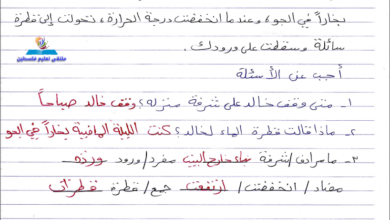 بخاراً في الجو، وعندما انخفضت درجة الحرارة، تحولت إلى قطرة
سائلة وسقطت على ورودك.
ملتقى تعليم فلسطين
أجب عن الأسئلة
١- متى وقف خالد على شرفة منزله؟ وقف خالد صباحاً
٢- ماذا قالت قطرة الماء لخالد؟ كنت الليلة الماضية بخاراً في الجو
٣- ما مرادف/ شرفة بناء خارج البيت مفرد/ ورود وردة
مضاد/ انخفضت/ ارتفعت جمع/ قطرة قطرات